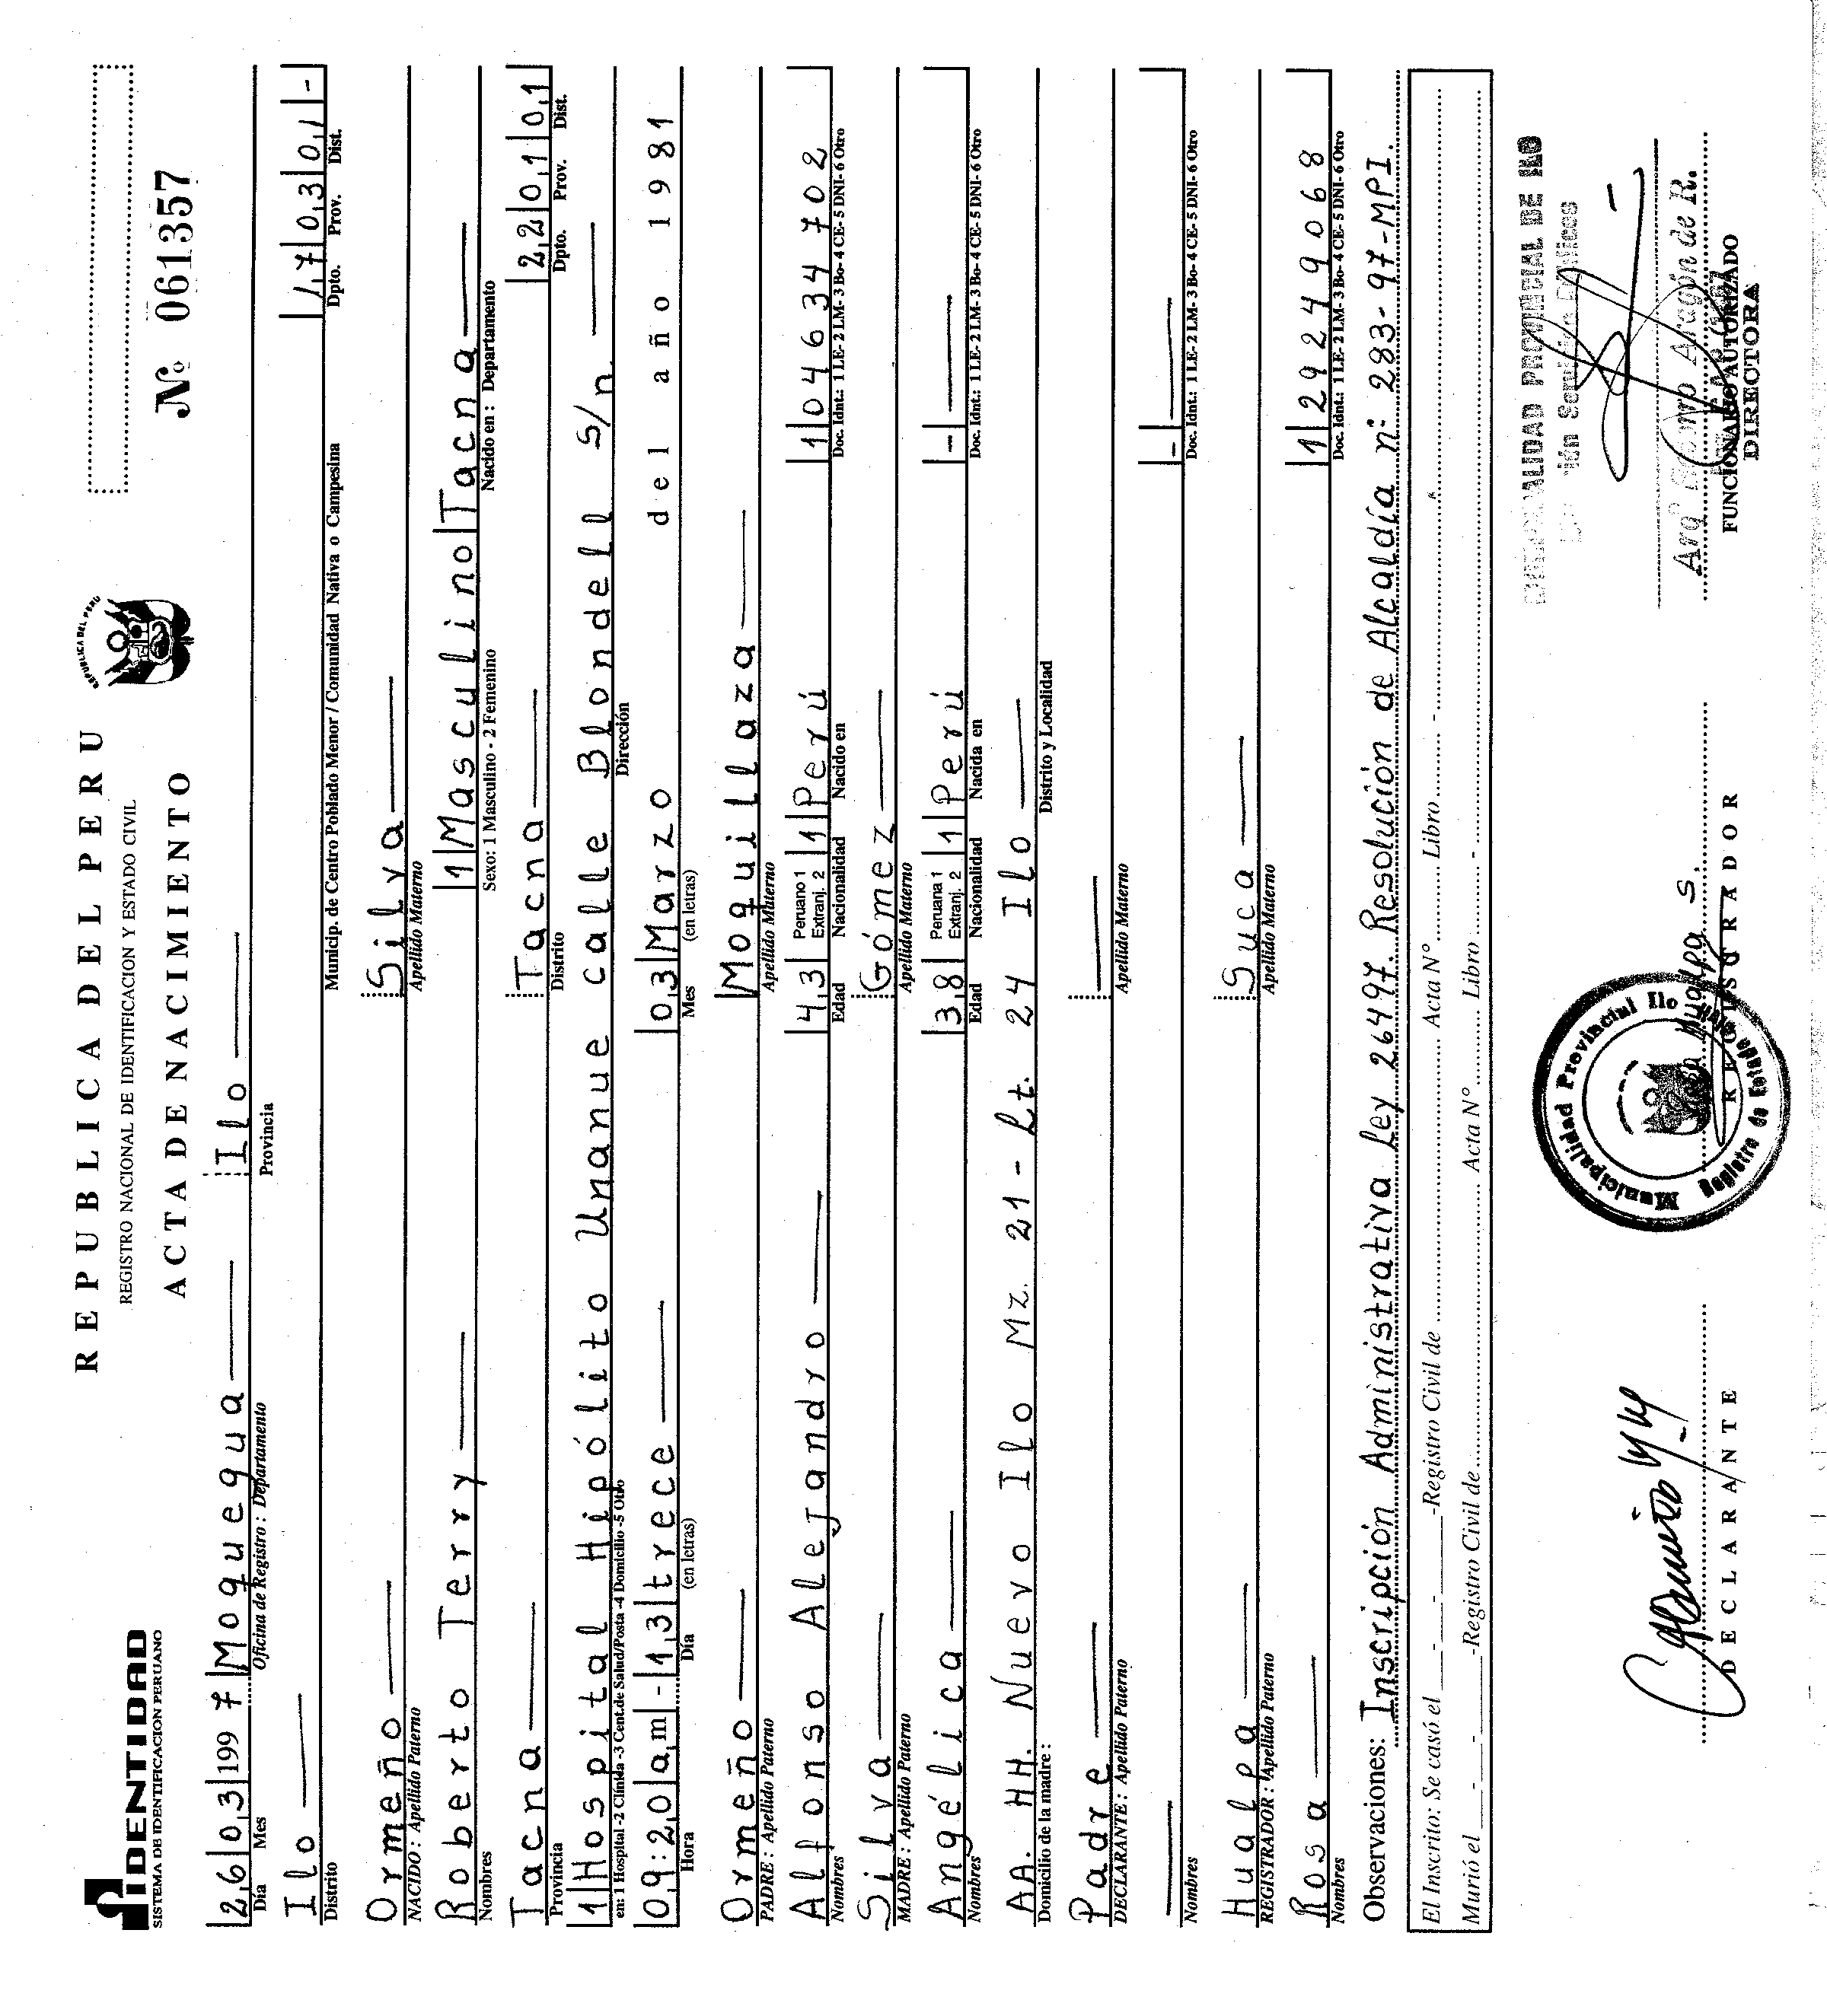 IDENTIDAD
SISTEMA DE IDENTIFICACION PERUANO
REPUBLICA DEL PERU
REGISTRO NACIONAL DE IDENTIFICACION Y ESTADO CIVIL
ACTA DE NACIMIENTO
REPUBLICA DEL PERU
Nº 061357
26 03 1997 Moquegua Ilo
Día Mes Oficina de Registro : Departamento Provincia
Ilo 17 03 01 -
Distrito Municip. de Centro Poblado Menor / Comunidad Nativa o Campesina Dpto. Prov. Dist.
Ormeño Silva
NACIDO : Apellido Paterno Apellido Materno
Roberto Terry 1 Masculino Tacna
Nombres Sexo: 1 Masculino - 2 Femenino Nacido en : Departamento
Tacna Tacna 22 01 01
Provincia Distrito Dpto. Prov. Dist.
1 Hospital Hipólito Unanue calle Blondell s/n
en: 1 Hospital -2 Clínica -3 Cent.de Salud/Posta -4 Domicilio -5 Otro Dirección
09:20 am - 13 trece 03 Marzo del año 1981
Hora Día (en letras) Mes (en letras)
Ormeño Moquillaza
PADRE : Apellido Paterno Apellido Materno
Alfonso Alejandro 43 Peruano 1 Extranj. 2 1 Perú 1 04634702
Nombres Edad Nacionalidad Nacido en Doc. Idnt.: 1 LE- 2 LM- 3 Bo- 4 CE- 5 DNI- 6 Otro
Silva Gómez
MADRE : Apellido Paterno Apellido Materno
Angélica 38 Peruana 1 Extranj. 2 1 Perú -
Nombres Edad Nacionalidad Nacida en Doc. Idnt.: 1 LE- 2 LM- 3 Bo- 4 CE- 5 DNI- 6 Otro
AA. HH. Nuevo Ilo Mz. 21 - Lt. 24 Ilo
Domicilio de la madre : Distrito y Localidad
Padre
DECLARANTE : Apellido Paterno Apellido Materno
-
Nombres Doc. Idnt.: 1 LE- 2 LM- 3 Bo- 4 CE- 5 DNI- 6 Otro
Hualpa Suca
REGISTRADOR : Apellido Paterno Apellido Materno
Rosa 1 29249068
Nombres Doc. Idnt.: 1 LE- 2 LM- 3 Bo- 4 CE- 5 DNI- 6 Otro
Observaciones: Inscripción Administrativa Ley 26497 Resolución de Alcaldía nº 283-97-MPI.
El Inscrito: Se casó el - - -Registro Civil de Acta Nº Libro -
Murió el - - -Registro Civil de Acta Nº Libro -
MUNICIPALIDAD PROVINCIAL DE ILO
Municipalidad Provincial Ilo
Registro de Estado
Aragón de R.
DECLARANTE
REGISTRADOR
FUNCIONARIO AUTORIZADO
DIRECTORA